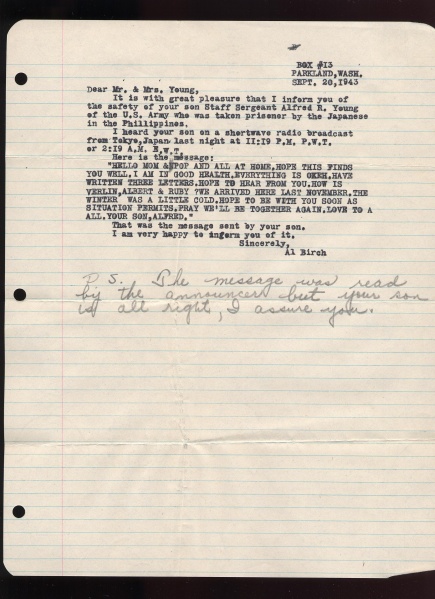 BOX #13
PARKLAND,WASH.
SEPT. 20,1943
Dear Mr. & Mrs. Young,
It is with great pleasure that I inform you of
the safety of your son Staff Sergeant Alfred R. Young
of the U.S. Army who was taken prisoner by the Japanese
in the Phillippines.
I heard your son on a shortwave radio broadcast
from Tokyo,Japan last night at II:I9 P.M. P.W.T.
or 2:I9 A.M. E.W.T.
Here is the message:
"HELLO MOM & POP AND ALL AT HOME,HOPE THIS FINDS
YOU WELL,I AM IN GOOD HEALTH,EVERYTHING IS OKEH,HAVE
WRITTEN THREE LETTERS,HOPE TO HEAR FROM YOU,HOW IS
VERLIN,ALBERT & RUBY ?WE ARRIVED HERE LAST NOVEMBER,THE
WINTER WAS A LITTLE COLD,HOPE TO BE WITH YOU SOON AS
SITUATION PERMITS,PRAY WE'LL BE TOGETHER AGAIN,LOVE TO A
ALL,YOUR SON,ALFRED,"
That was the message sent by your son.
I am very happy to inform you of it.
Sincerely,
Al Birch
P.S. The message was read
by the announcer but your son
is all right, I assure you.